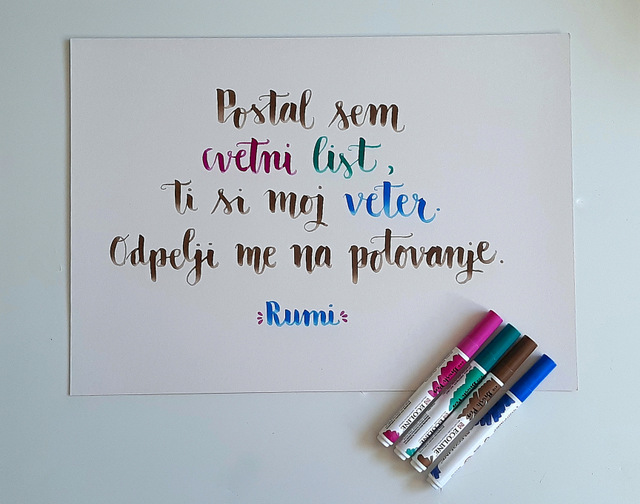 Postal sem
cvetni list,
ti si moj veter.
Odpelji me na potovanje.
Rumi
ECOLINE
ECOLINE
ECOLINE